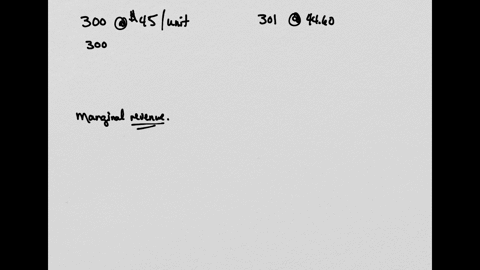 300 @ $45/unit 301 @ 44.60
300
Marginal revenue.